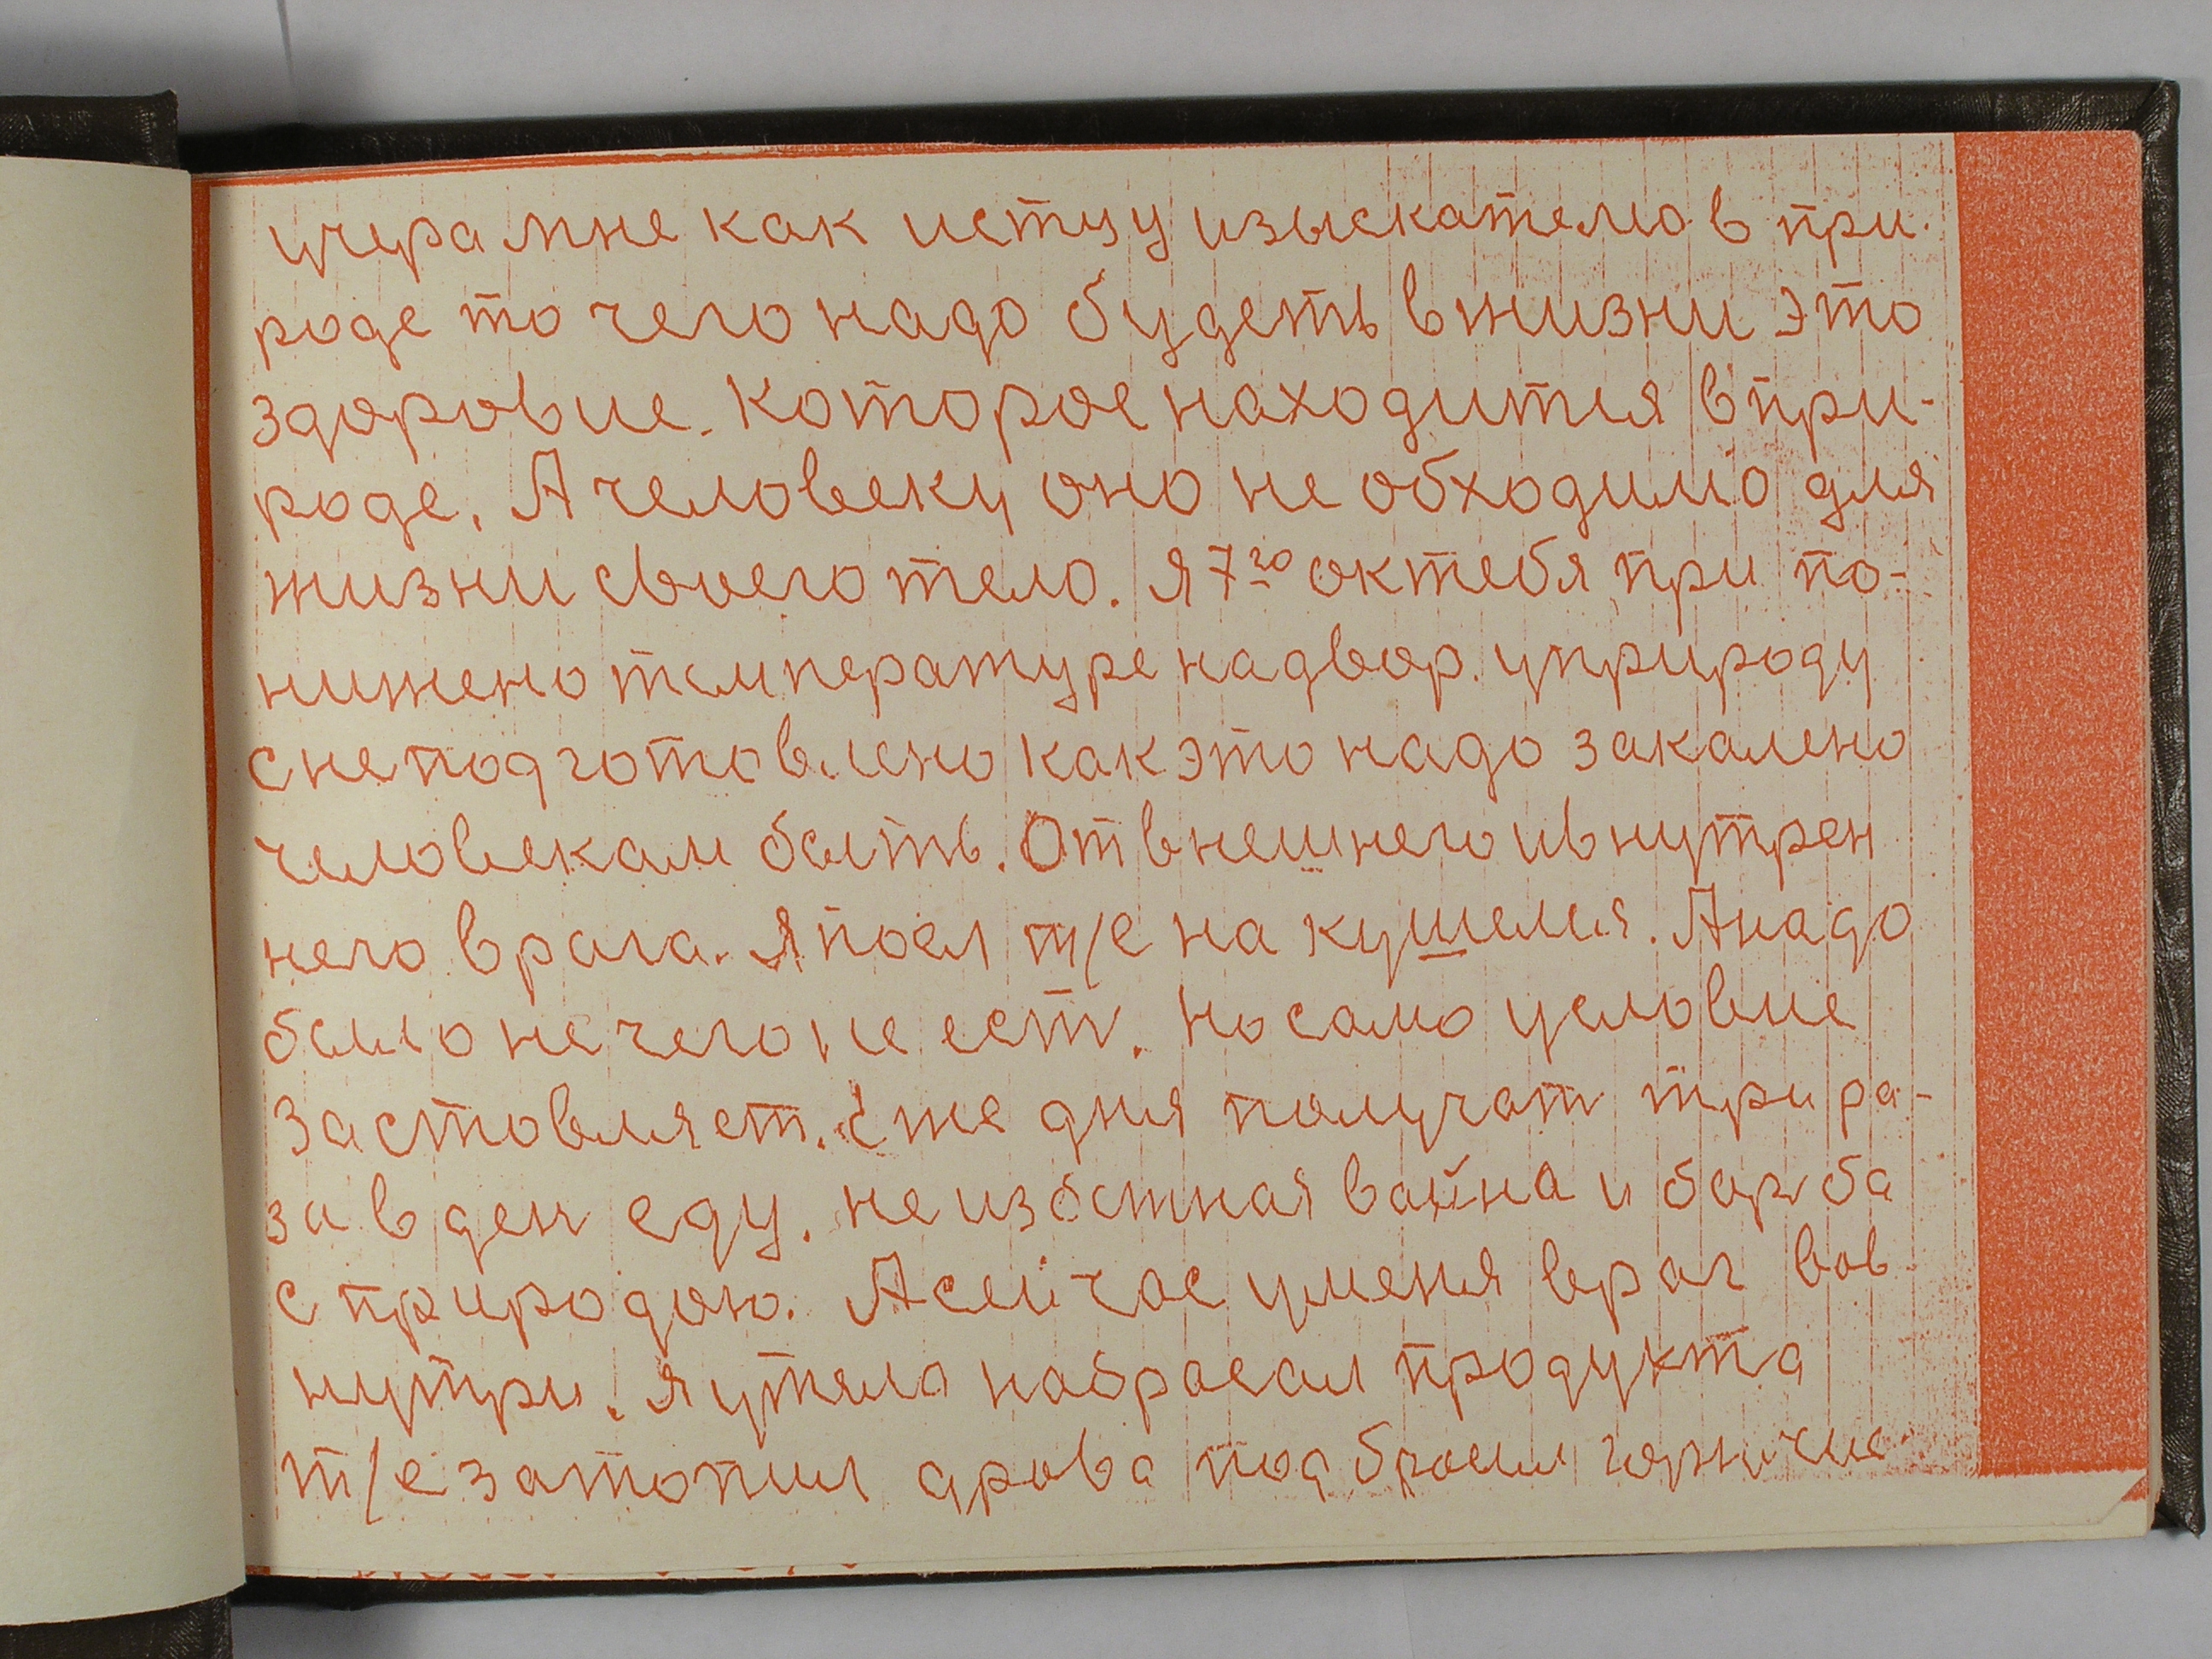 учера мне как истцу изыскателю в при-
роде то чего надо будеть в жизни это
здоровие. Которое находится в при-
роде. А человеку оно не обходимо для
жизни своего тело. Я 7го октебя при по-
нижено температуре на двор. у природу
с не подготовлено как это надо закалено
человекам быть. От внешнего и внутрен
него врага. Я поел т/е на кушелся. А надо
было не чего не ест. Но само условие
заставляет. Еже дня получат три ра-
за в ден еду. не избежная война и барба
с природою. А сейчас у меня враг вов
нутри. Я у тело набрасал продукта
т/е затопил дрова подбросил горючие